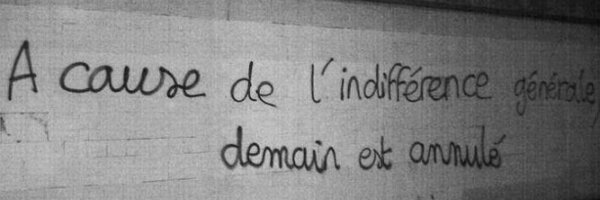 A cause de l'indifférence générale,
demain est annulé